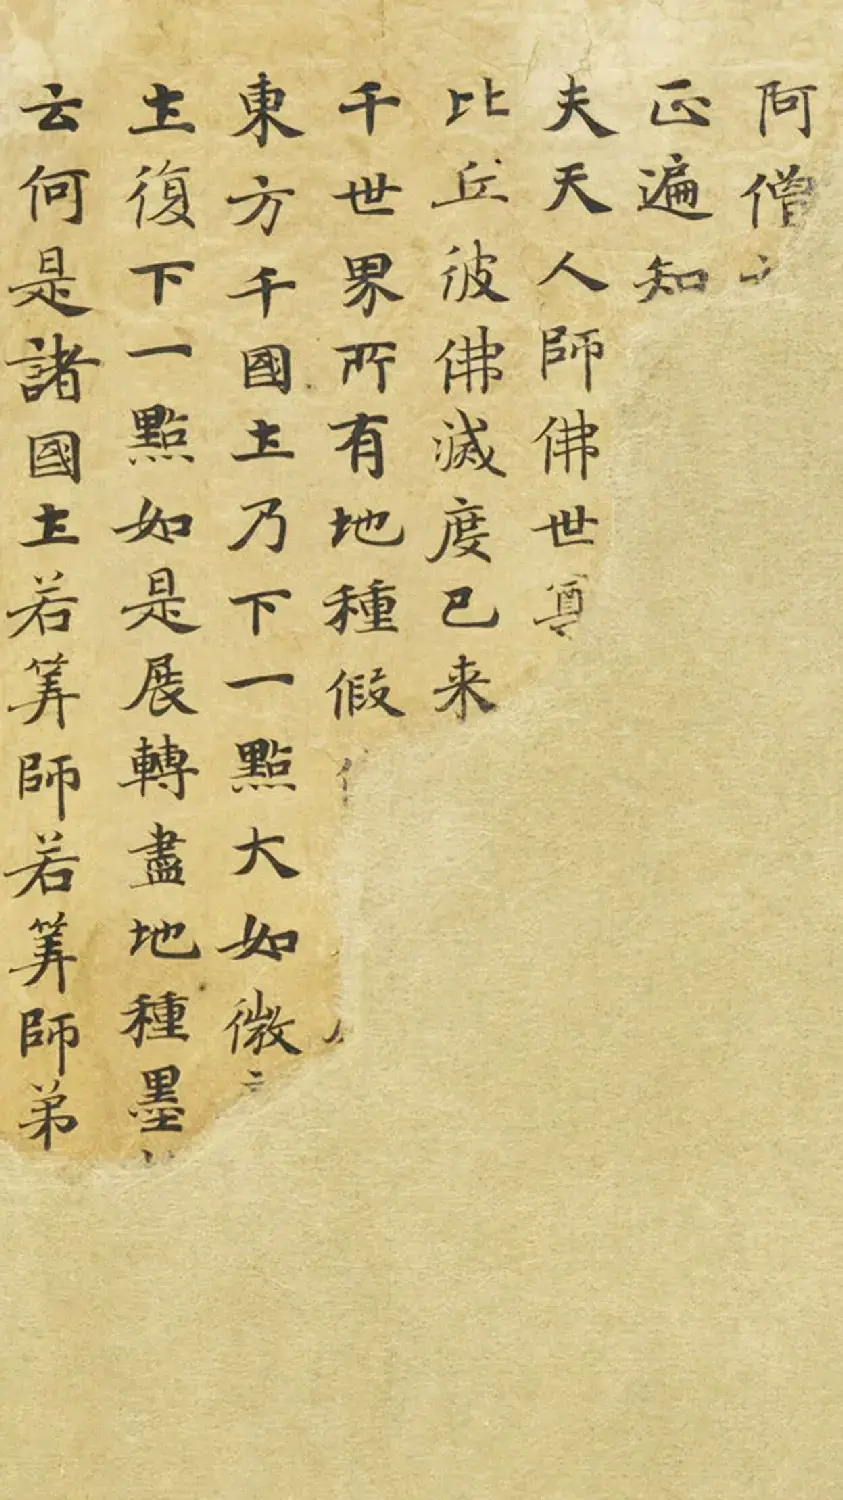 阿僧
正遍知
夫天人師佛世尊
比丘彼佛滅度已来
千世界所有地種假
東方千國土乃下一點大如微
土復下一點如是展轉盡地種墨
云何是諸國土若筭師若筭師弟